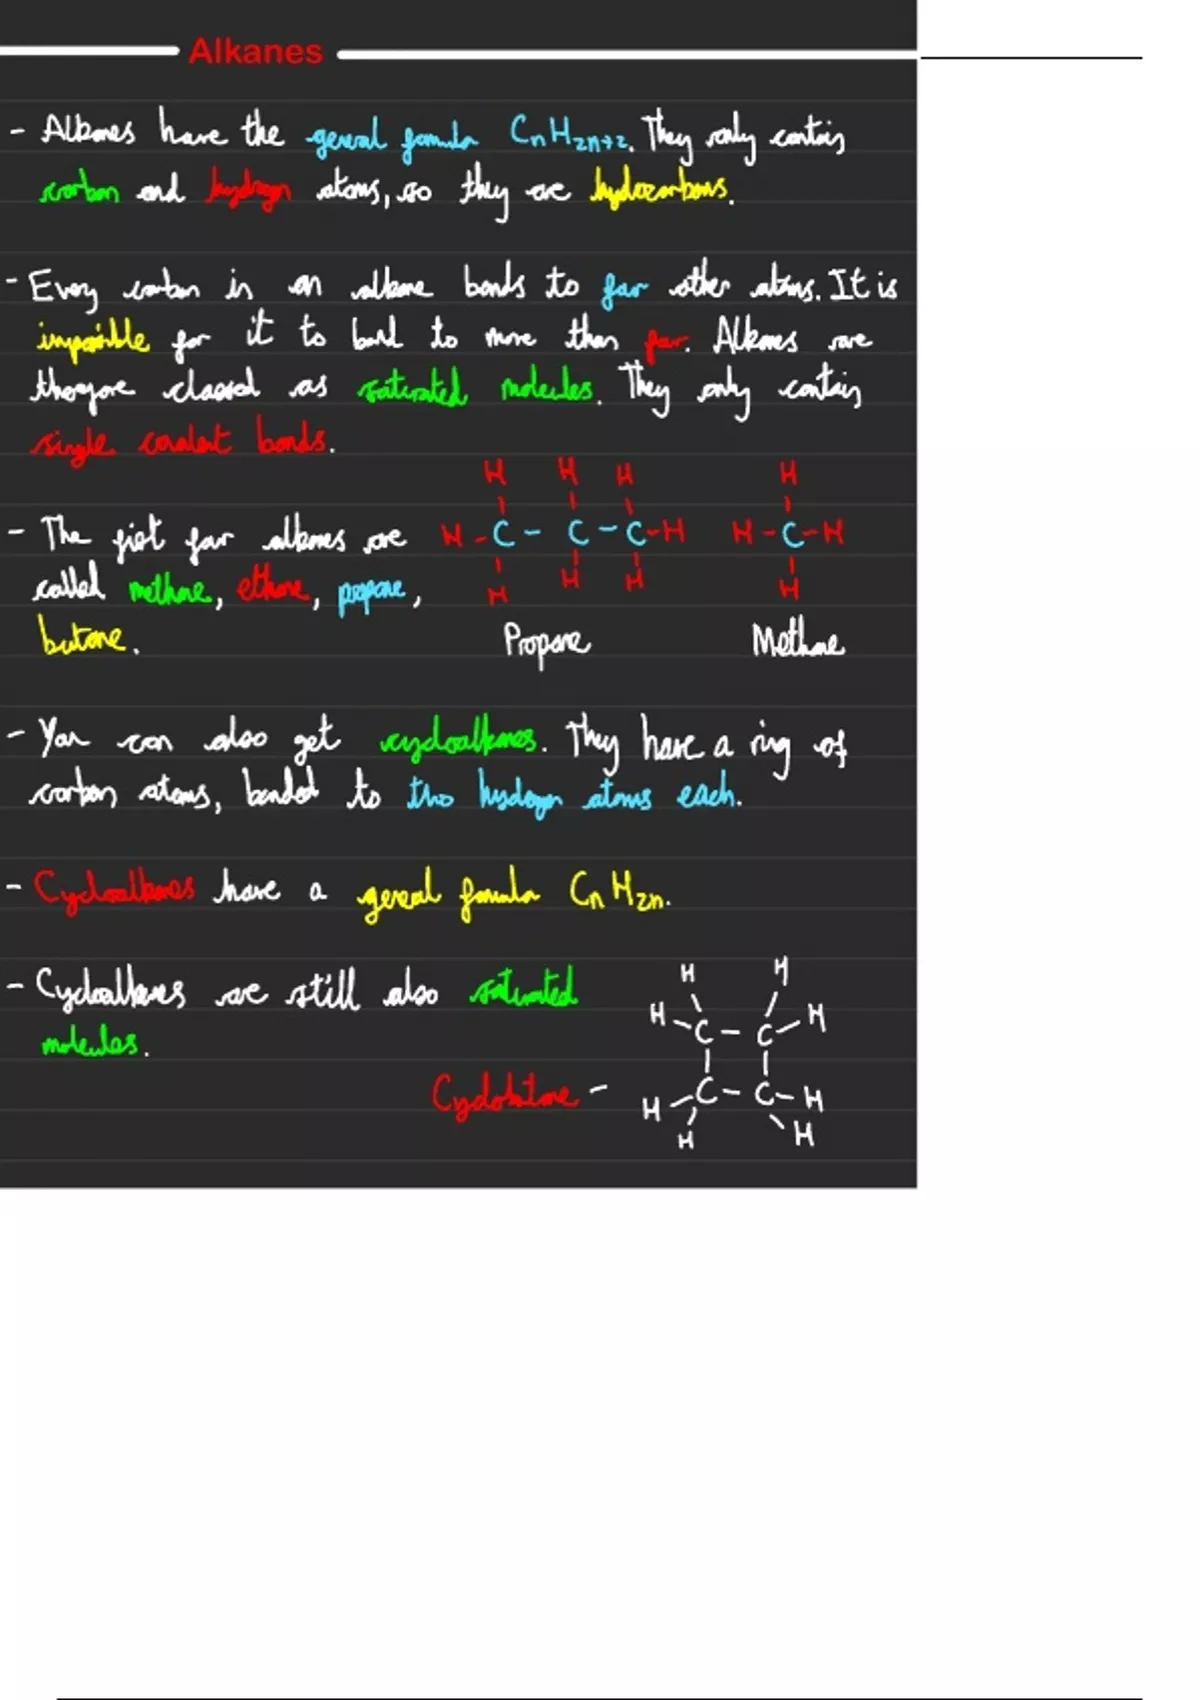 Alkanes
- Alkanes have the general formula CnH2n+2. They only contain
carbon and hydrogen atoms, so they are hydrocarbons.
- Every carbon in an alkane bonds to four other atoms. It is
impossible for it to bond to more than four. Alkanes are
therefore classed as saturated molecules. They only contain
single covalent bonds.
H H H H
- The first four alkanes are H - C - C - C - H H - C - H
called methane, ethane, propane, H H H H
butane. Propane Methane
- You can also get cycloalkanes. They have a ring of
carbon atoms, bonded to two hydrogen atoms each.
- Cycloalkanes have a general formula CnH2n.
- Cycloalkanes are still also saturated H H
molecules. H - C - C - H
Cyclobutane - H - C - C - H
H H